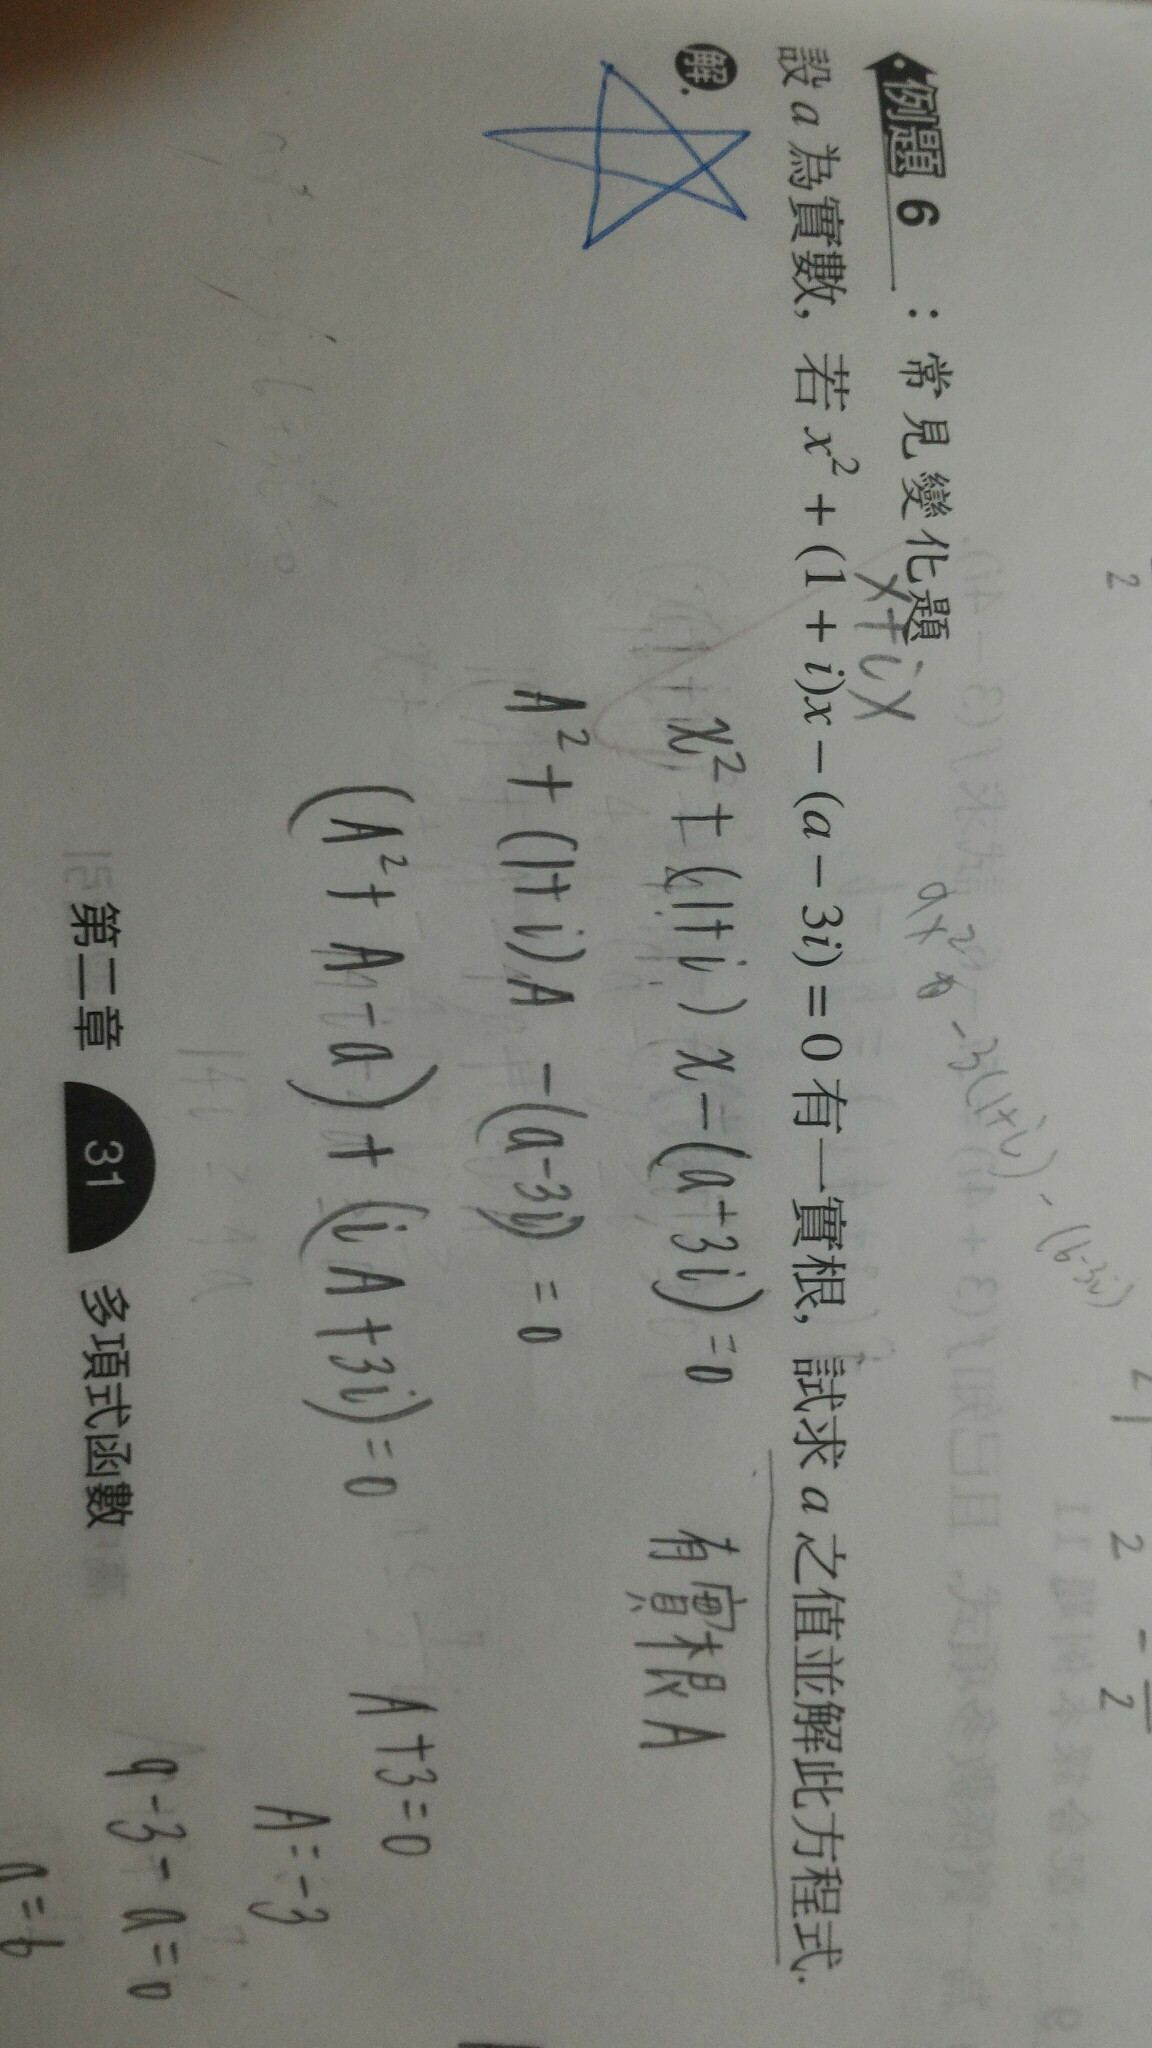 例題 6 : 常見變化題
x+ix
ax² - 3(1+i) - (6-3i)
設 a 為實數, 若 x² + (1 + i)x − (a − 3i) = 0 有一實根, 試求 a 之值並解此方程式.
解.
x² + (1+i) x - (a+3i) = 0 有實根 A
A² + (1+i)A - (a-3i) = 0
(A² + A - a) + (iA + 3i) = 0
A + 3 = 0
A = -3
9 - 3 - a = 0
a = 6
第二章 31 多項式函數